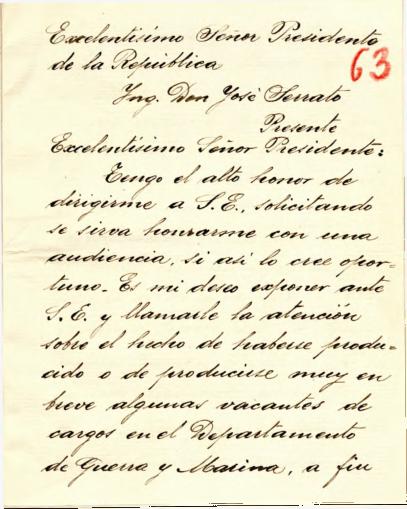 Excelentísimo Señor Presidente
de la República
63
Ing. Don José Serrato
Presente
Excelentísimo Señor Presidente:
Tengo el alto honor de
dirigirme a S.E., solicitando
se sirva honrarme con una
audiencia, si así lo cree opor-
tuno. Es mi deseo exponer ante
S.E. y llamarle la atención
sobre el hecho de haberse produ-
cido o de producirse muy en
breve algunas vacantes de
cargos en el Departamento
de Guerra y Marina, a fin